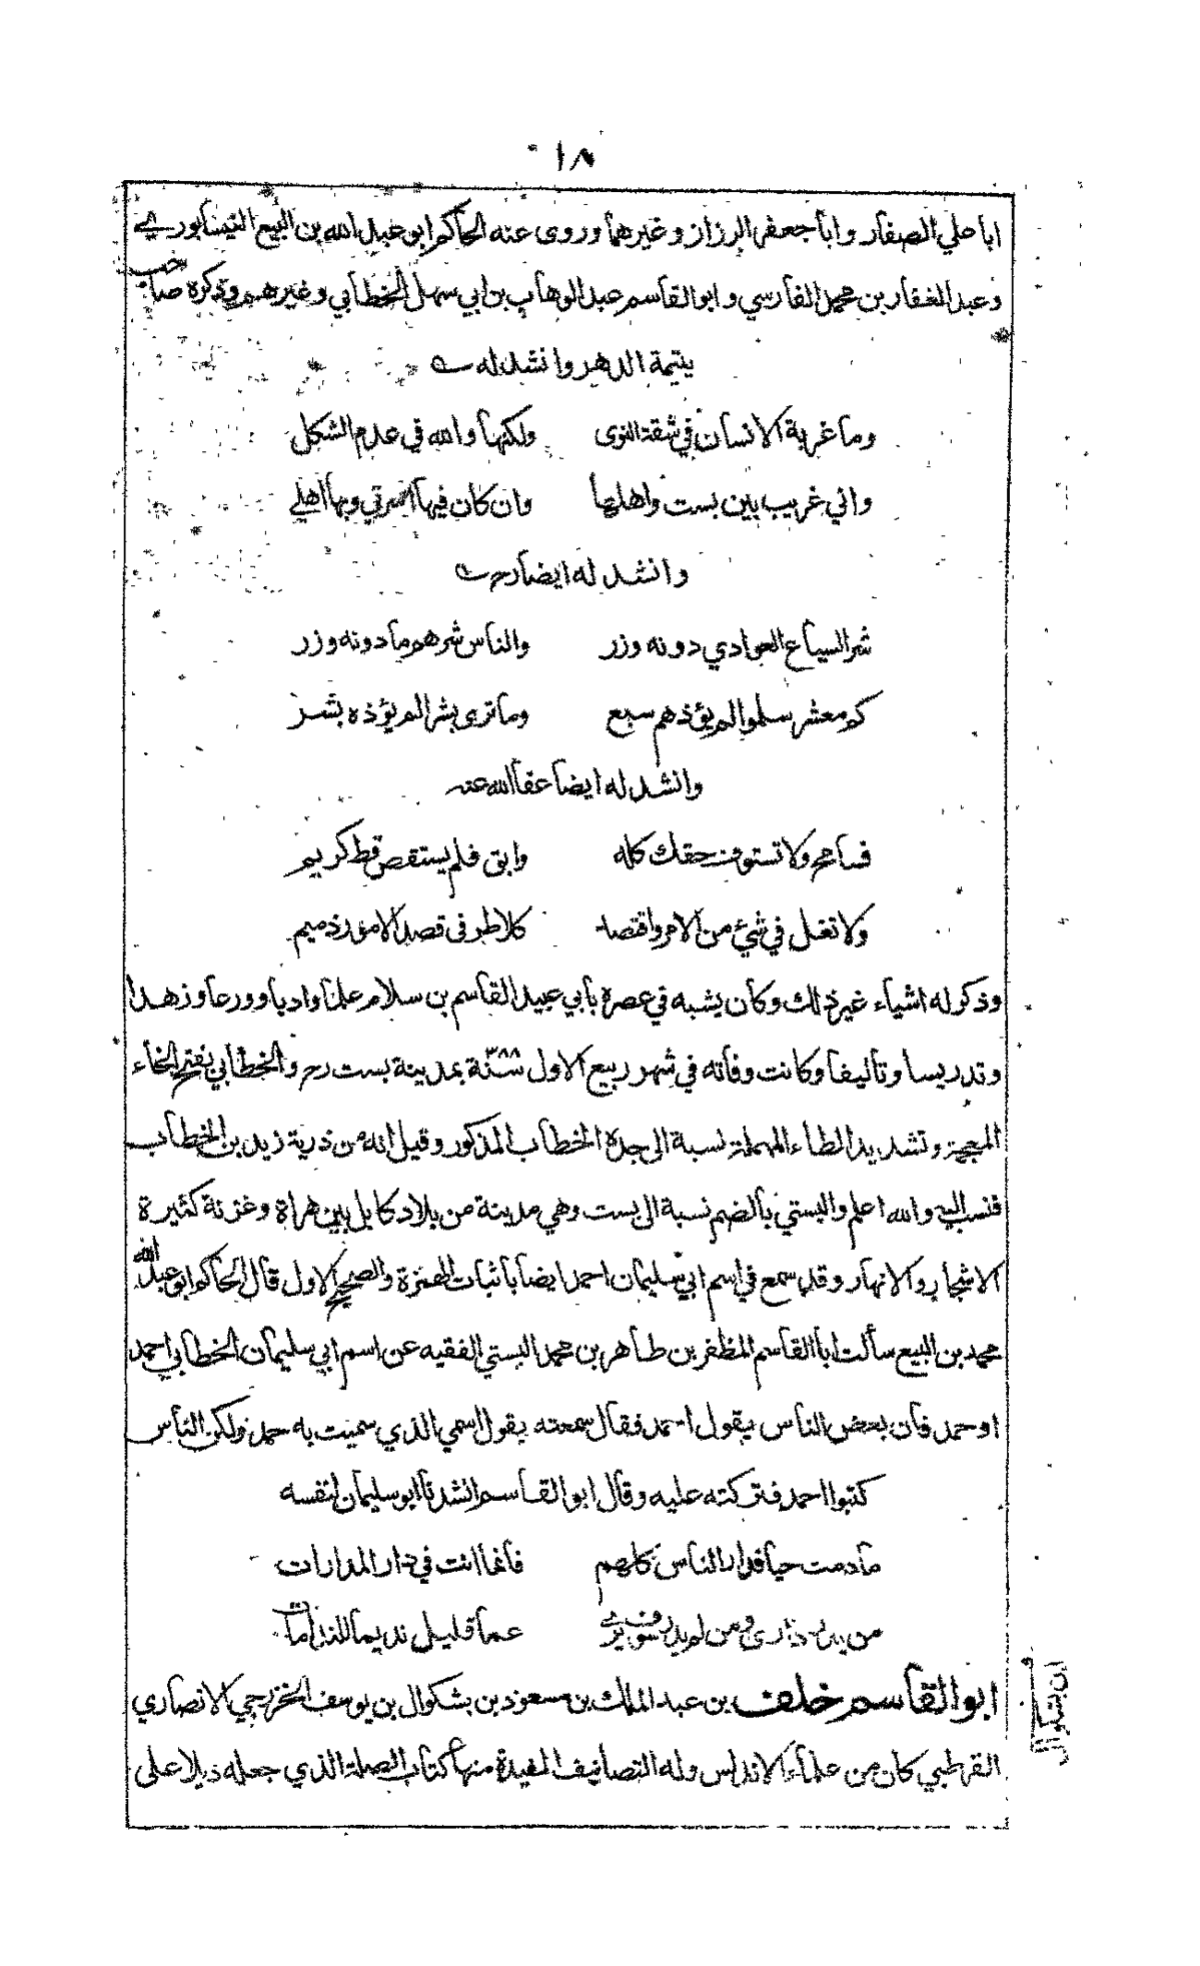 ١٨٠
ابا علي الصفار وابا جعفر الرزاز وغيرهما وروى عنه الحاكم ابو عبد الله بن البيع النيسابوري
وعبد الغفار بن محمد الفارسي وابو القاسم عبد الوهاب بن ابي سهل الخطابي وغيرهم وذكره صاحب
يتيمة الدهر وانشد له
وما غربة الانسان في شقة النوى ولكنها والله في عدم الشكل
واني غريب بين بست واهلها وان كان فيها اسرتي وبها اهلي
وانشد له ايضا رح
شر السباع العوادي دونه وزر والناس شرهم ما دونه وزر
كم معشر سلموا لم يؤذهم سبع وما ترى بشرا لم يؤذه بشر
وانشد له ايضا عفا الله عنه
فسامح ولا تستوف حقك كله وابق فلم يستقص قط كريم
ولا تغل في شئ من الامر واقتصد كلا طرفى قصد الامور ذميم
وذكر له اشياء غير ذلك وكان يشبه في عصره بابي عبيد القاسم بن سلام علما وادبا وورعا وزهدا
وتدريسا وتاليفا وكانت وفاته في شهر ربيع الاول سنة ٣٨٨ بمدينة بست رح والخطابي بفتح الخاء
المعجمة وتشديد الطاء المهملة نسبة الى جده الخطاب المذكور وقيل انه من ذرية زيد بن الخطاب
فنسب اليه والله اعلم والبستي بالضم نسبة الى بست وهي مدينة من بلاد كابل بين هراة وغزنة كثيرة
الاشجار والانهار وقد سمع في اسم ابي سليمان احمد ايضا باثبات الهمزة والصحيح الاول قال الحاكم ابو عبد الله
محمد بن البيع سألت ابا القاسم المظفر بن طاهر بن محمد البستي الفقيه عن اسم ابي سليمان الخطابي احمد
او حمد فان بعض الناس يقول احمد فقال سمعته يقول اسمي الذي سميت به حمد ولكن الناس
كتبوا احمد فتركته عليه وقال ابو القاسم انشدنا ابو سليمان لنفسه
ما دمت حيا فدار الناس كلهم فانما انت في دار المدارات
من يدر دارى ومن لم يدر سوف يرى عما قليل نديما للندامات
ابو القاسم خلف بن عبد الملك بن مسعود بن بشكوال بن يوسف الخزرجي الانصاري
القرطبي كان من علماء الاندلس وله التصانيف المفيدة منها كتاب الصلة الذي جعله ذيلا على
ابن بشكوال